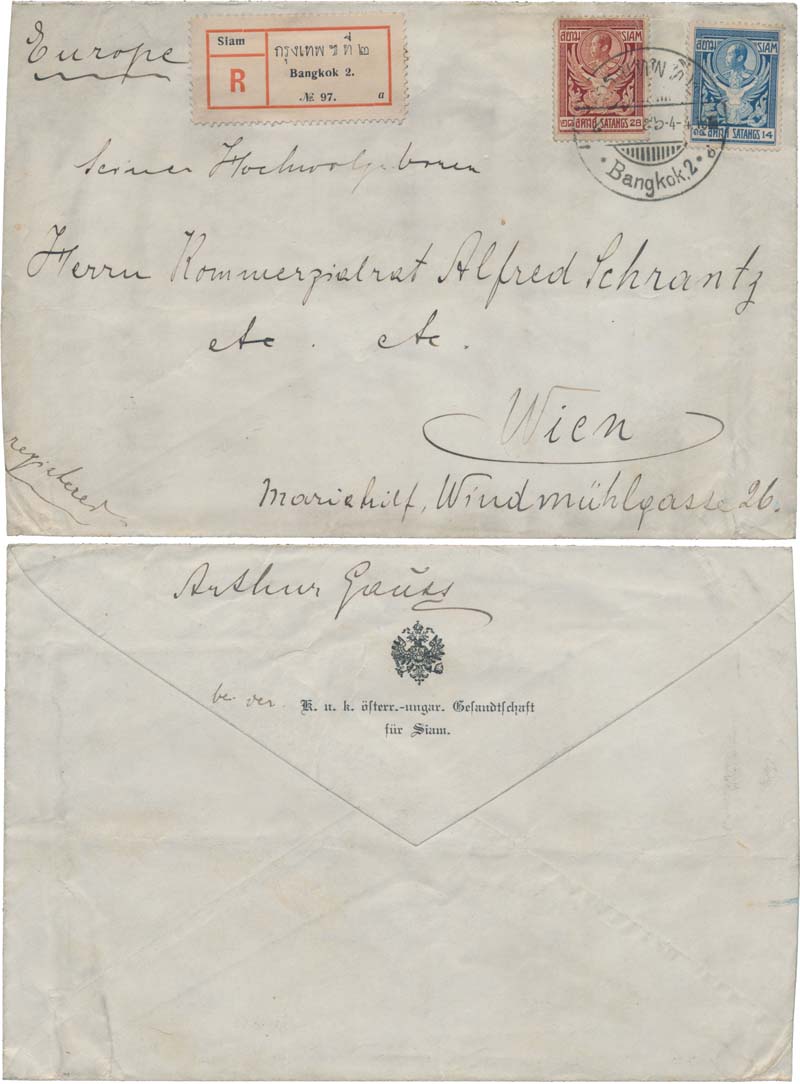 Europe
Siam
R
กรุงเทพ ซ ที่ ๒
Bangkok 2.
№ 97. a
สยาม SIAM
๒๘ สตางค์ SATANGS 28
สยาม SIAM
๑๔ สตางค์ SATANGS 14
Bangkok.2
Seiner Hochwolgeboren
Herrn Kommerzialrat Alfred Schrantz
etc. etc.
Wien
registered
Mariahilf, Windmühlgasse 26.
Arthur Gauss
bei der K. u. k. österr.-ungar. Gesandtschaft
für Siam.